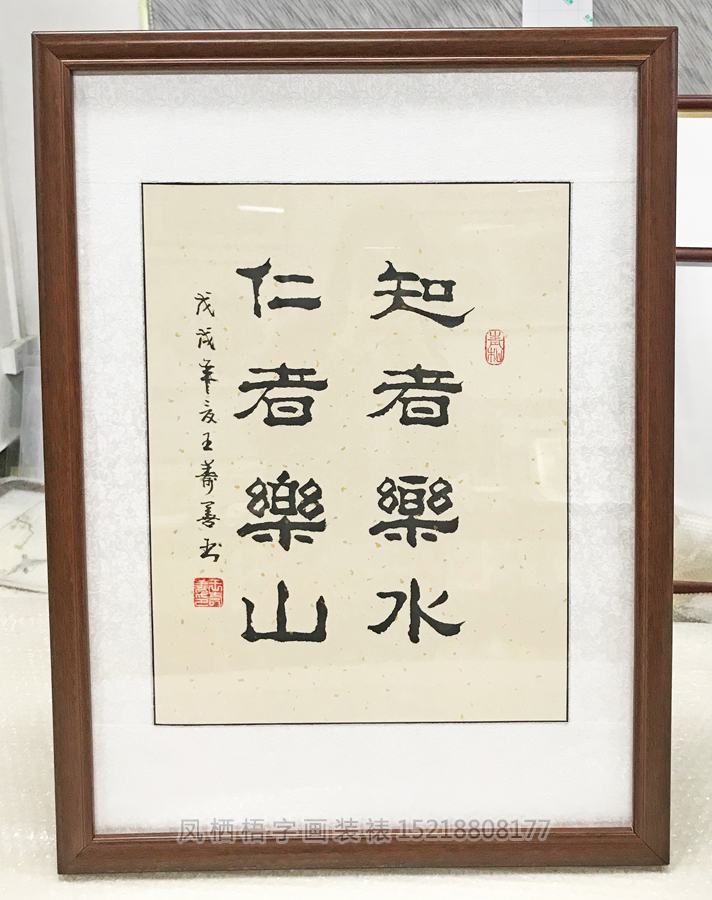 知者樂水
仁者樂山
戊戌年夏王壽善书
凤栖梧字画装裱15218808177